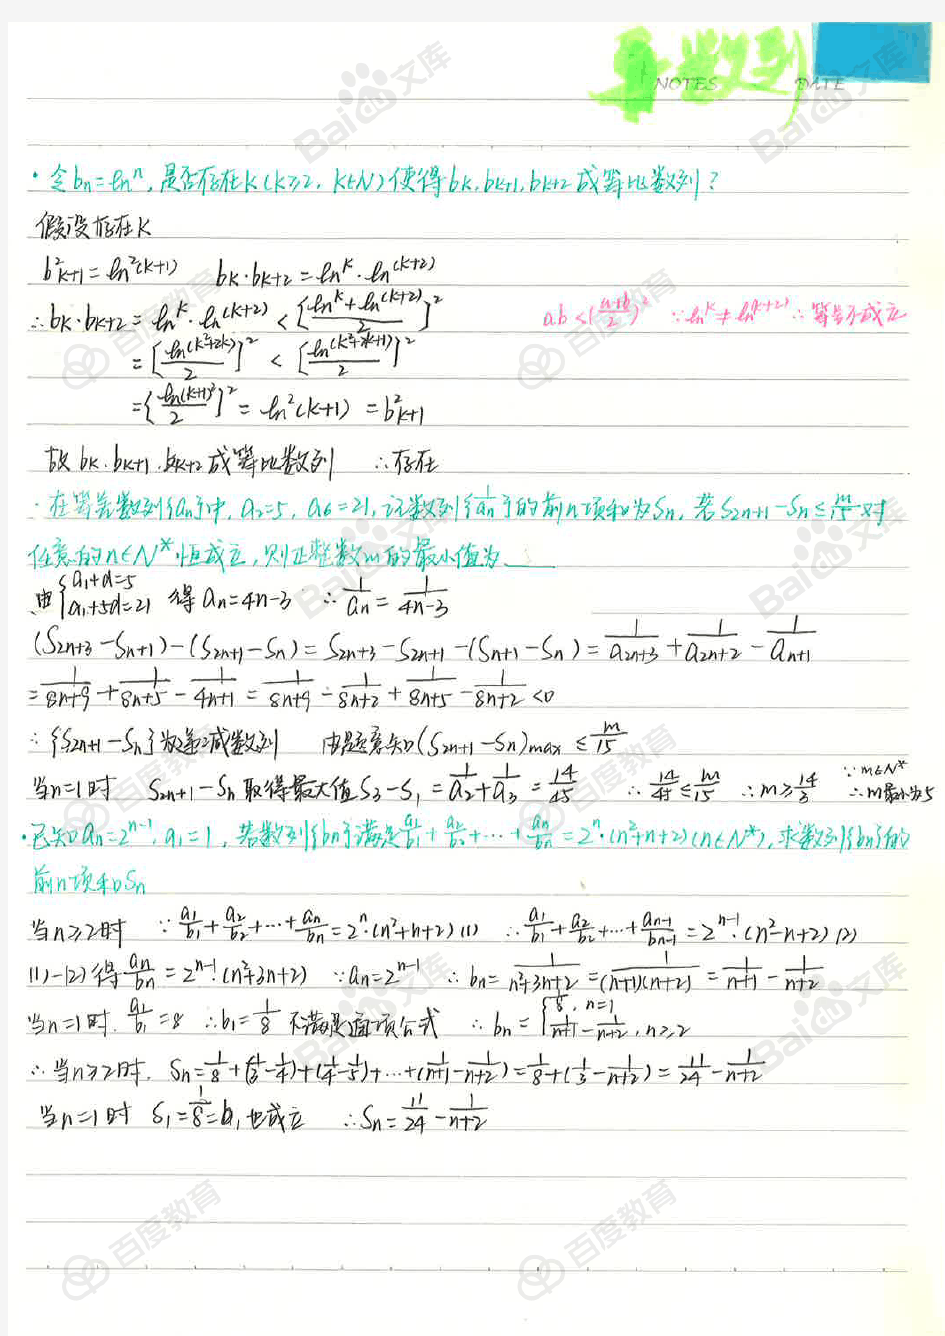 数列
NOTES DATE
·令bn=lnⁿ,是否存在K(K≥2,K∈N)使得bK,bK+1,bK+2成等比数列?
假设存在K
b²K+1=ln²(K+1) bK·bK+2=lnᴷ·ln(K+2)
∴bK·bK+2=lnᴷ·ln(K+2)<[(lnᴷ+ln(K+2))/2]² ab<((a+b)/2)² ∵lnᴷ≠ln(K+2) ∴等号不成立
=[ln(K²+2K)/2]²<[ln(K²+2K+1)/2]²
=[ln(K+1)²/2]²=ln²(K+1)=b²K+1
故bK,bK+1,bK+2成等比数列 ∴存在
·在等差数列{an}中,a2=5,a6=21,记数列{1/an}的前n项和为Sn,若S2n+1-Sn≤m/15对
任意的n∈N*恒成立,则正整数m的最小值为____
由{a1+d=5 a1+5d=21 得an=4n-3 ∴1/an=1/(4n-3)
(S2n+3-Sn+1)-(S2n+1-Sn)=S2n+3-S2n+1-(Sn+1-Sn)=1/a2n+3+1/a2n+2-1/an+1
=1/(8n+9)+1/(8n+5)-1/(4n+1)=1/(8n+9)-1/(8n+2)+1/(8n+5)-1/(8n+2)<0
∴{S2n+1-Sn}为递减数列 由题意知(S2n+1-Sn)max≤m/15
当n=1时 S2n+1-Sn取得最大值S3-S1=1/a2+1/a3=14/45 ∴14/45≤m/15 ∴m≥14/3 ∵m∈N* ∴m最小为5
·已知an=2ⁿ⁻¹,a1=1,若数列{bn}满足a1/b1+a2/b2+…+an/bn=2ⁿ·(n²+n+2)(n∈N*),求数列{bn}的
前n项和Sn
当n≥2时 ∵a1/b1+a2/b2+…+an/bn=2ⁿ·(n²+n+2)(1) ∴a1/b1+a2/b2+…+an-1/bn-1=2ⁿ⁻¹·(n²-n+2)(2)
(1)-(2)得an/bn=2ⁿ⁻¹·(n²+3n+2) ∵an=2ⁿ⁻¹ ∴bn=1/(n²+3n+2)=1/(n+1)(n+2)=1/(n+1)-1/(n+2)
当n=1时,a1/b1=8 ∴b1=1/8 不满足通项公式 ∴bn={1/8,n=1 1/(n+1)-1/(n+2),n≥2
∴当n≥2时,Sn=1/8+(1/3-1/4)+(1/4-1/5)+…+(1/(n+1)-1/(n+2))=1/8+(1/3-1/(n+2))=11/24-1/(n+2)
当n=1时 S1=1/8=b1也成立 ∴Sn=11/24-1/(n+2)
Bai文库
百度教育